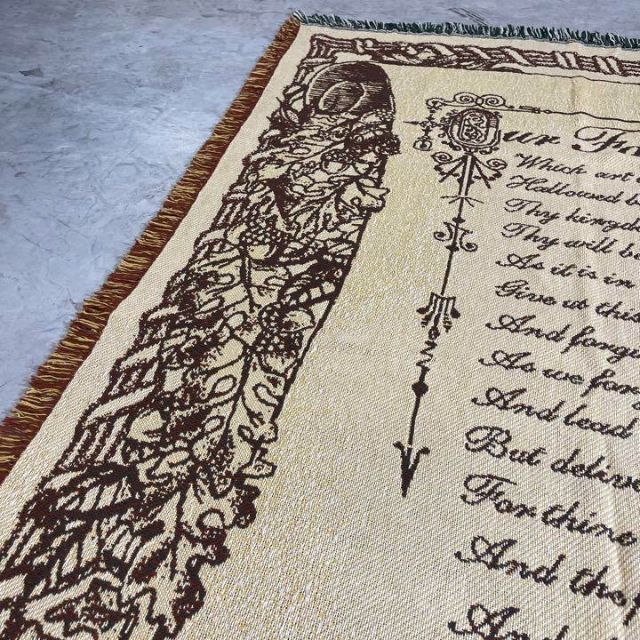 Our Fa
Which art
Hallowed b
Thy kingd
Thy will be
As it is in
Give us this
And forgi
As we for
And lead
But delive
For thine
And the
And